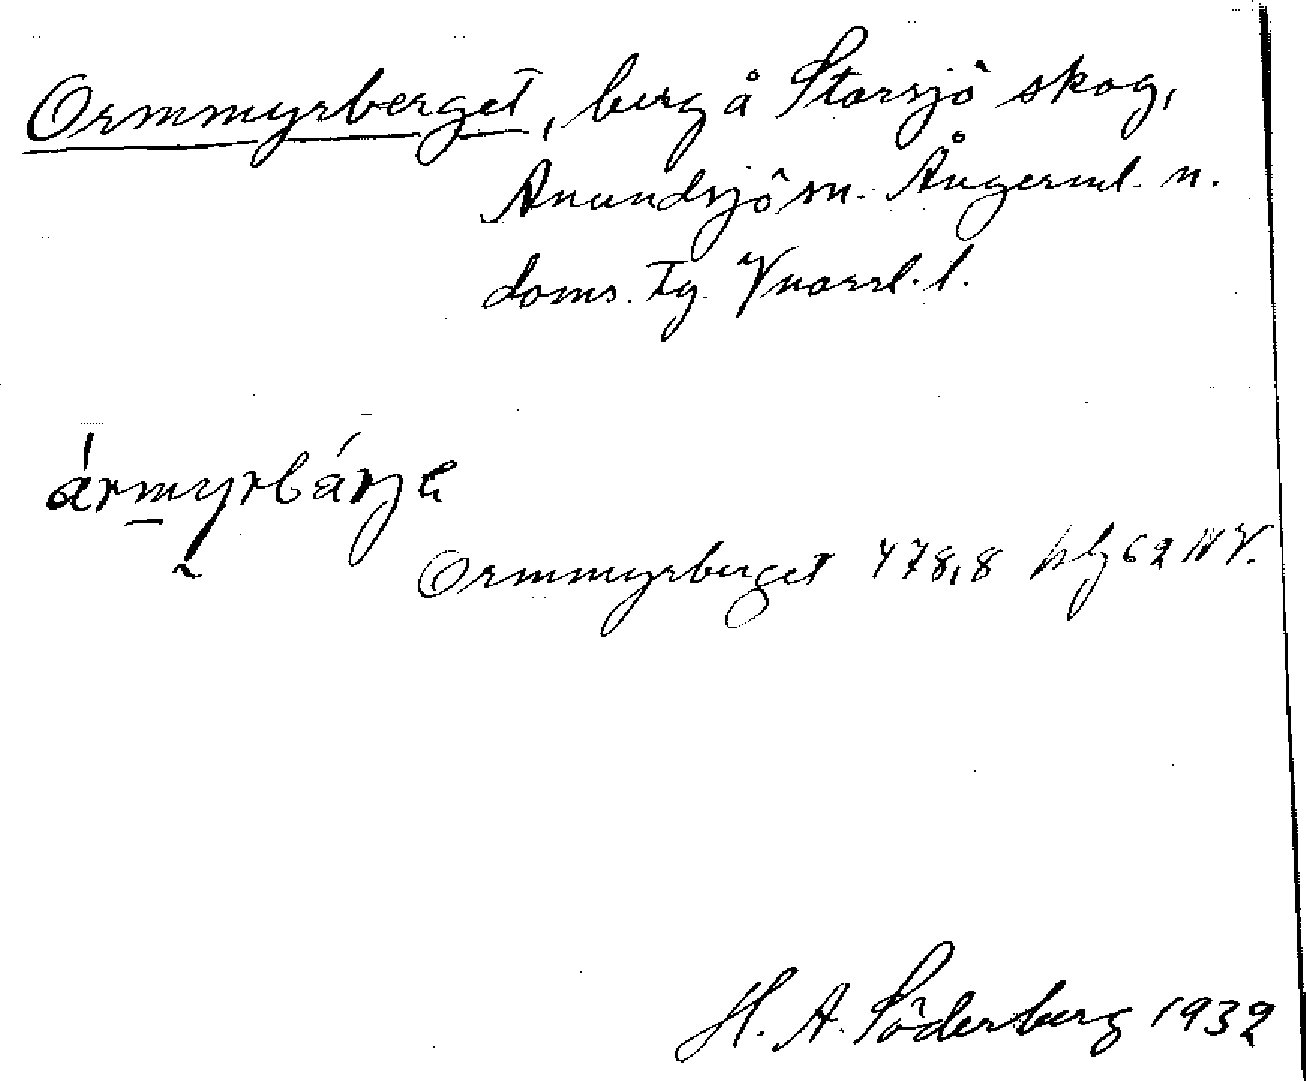 Ormmyrberget, berg å Storsjö skog,
Anundsjö sn. Ångerml. n.
doms. tg. Vnorrl. l.
ármyrbárjə
Ormmyrberget 478,8 hbl 62 NV.
H. A. Söderberg 1932